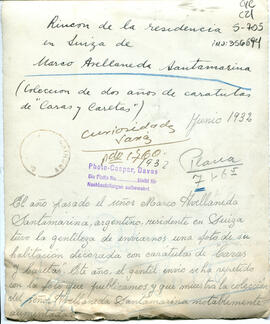 Rincon de la residencia
en Suiza de
Marco Avellaneda Santamarina
(Coleccion de dos años de caratulas
de "Caras y Caretas")
Junio 1932
curiosidades
1932
Photo-Casper, Davos
Die Platte No. bleibt für
Nachbestellungen aufbewahrt
El año pasado el señor Marco Avellaneda
Santamarina, argentino, residente en Suiza
tuvo la gentileza de enviarnos una foto de su
habitacion decorada con caratulas de Caras
y Caretas. Este año, el gentil envio se ha repetido
con la foto que publicamos, y que muestra la coleccion
del señor Avellaneda Santamarina notablemente
aumentada.